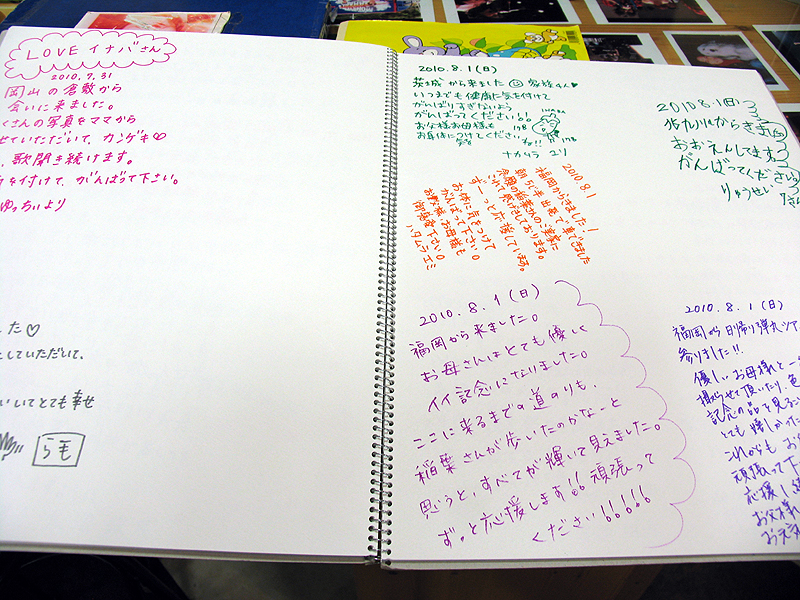 LOVE イナバさん
2010.7.31
岡山の倉敷から
会いに来ました。
くさんの写真をママから
せていただいて、カンゲキ♡
、歌聞き続けます。
を付けて、がんばって下さい。
ゆっちぃより
した♡
していただいて、
いてとても幸せ
らも
2010.8.1(日)
茨城から来ました 家族4人♥
いつまでも健康に気を付けて
がんばりすぎないよう
がんばってください!!
お父様お母様も
お身体に
ナカムラ ユリ
2010.8.1(日)
北九州からきました
おおえんしてます
がんばってください。
りゅうせい
2010.8.1
福岡からきました!
朝5じ半出発で車できました
ずーっと応援している。
お体に気をつけて
がんばって下さい。
お父様、お母様も
御自愛下さい。
2010.8.1(日)
福岡から来ました。
お母さんはとても優しく
イイ記念になりました。
ここに来るまでの道のりも、
稲葉さんが歩いたのかなーと
思うと、すべてが輝いて見えました。
ずっと応援します!!頑張って
ください!!!!!
2010.8.1(日)
福岡から日帰り弾丸ツア
参りました!!
優しいお母様と一
撮らせて頂いたり、色
記念の品を見る
とても嬉しかった
これからも お
頑張って下
応援し続
お父様
お元気